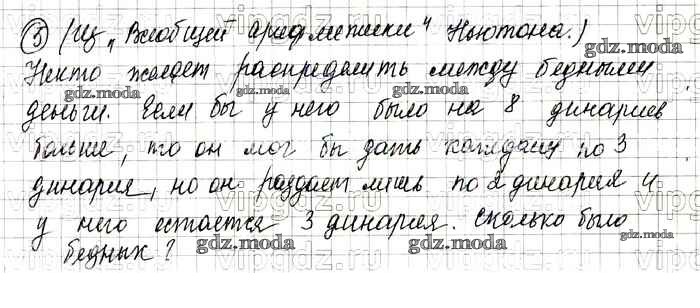 3) (Из „Всеобщей арифметики“ Ньютона.)
Некто желает распределить между бедными
деньги. Если бы у него было на 8 динариев
больше, то он мог бы дать каждому по 3
динария, но он раздает лишь по 2 динария и
у него остается 3 динария. Сколько было
бедных?
gdz.moda
gdz.moda
gdz.moda
gdz.moda
gdz.moda
gdz.moda
gdz.moda
gdz.moda
gdz.moda
gdz.moda
gdz.moda